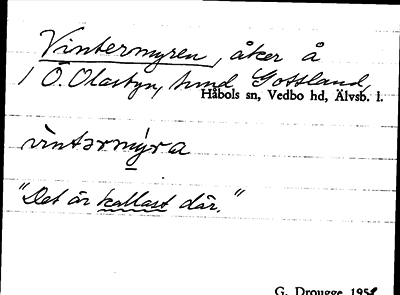 Vintermyren, åker å
1 Ö. Olastyn, hmd Gottland,
Håbols sn, Vedbo hd, Älvsb. l.
vìntərmýra
"Det är kallast där."
G. Drougge 1951